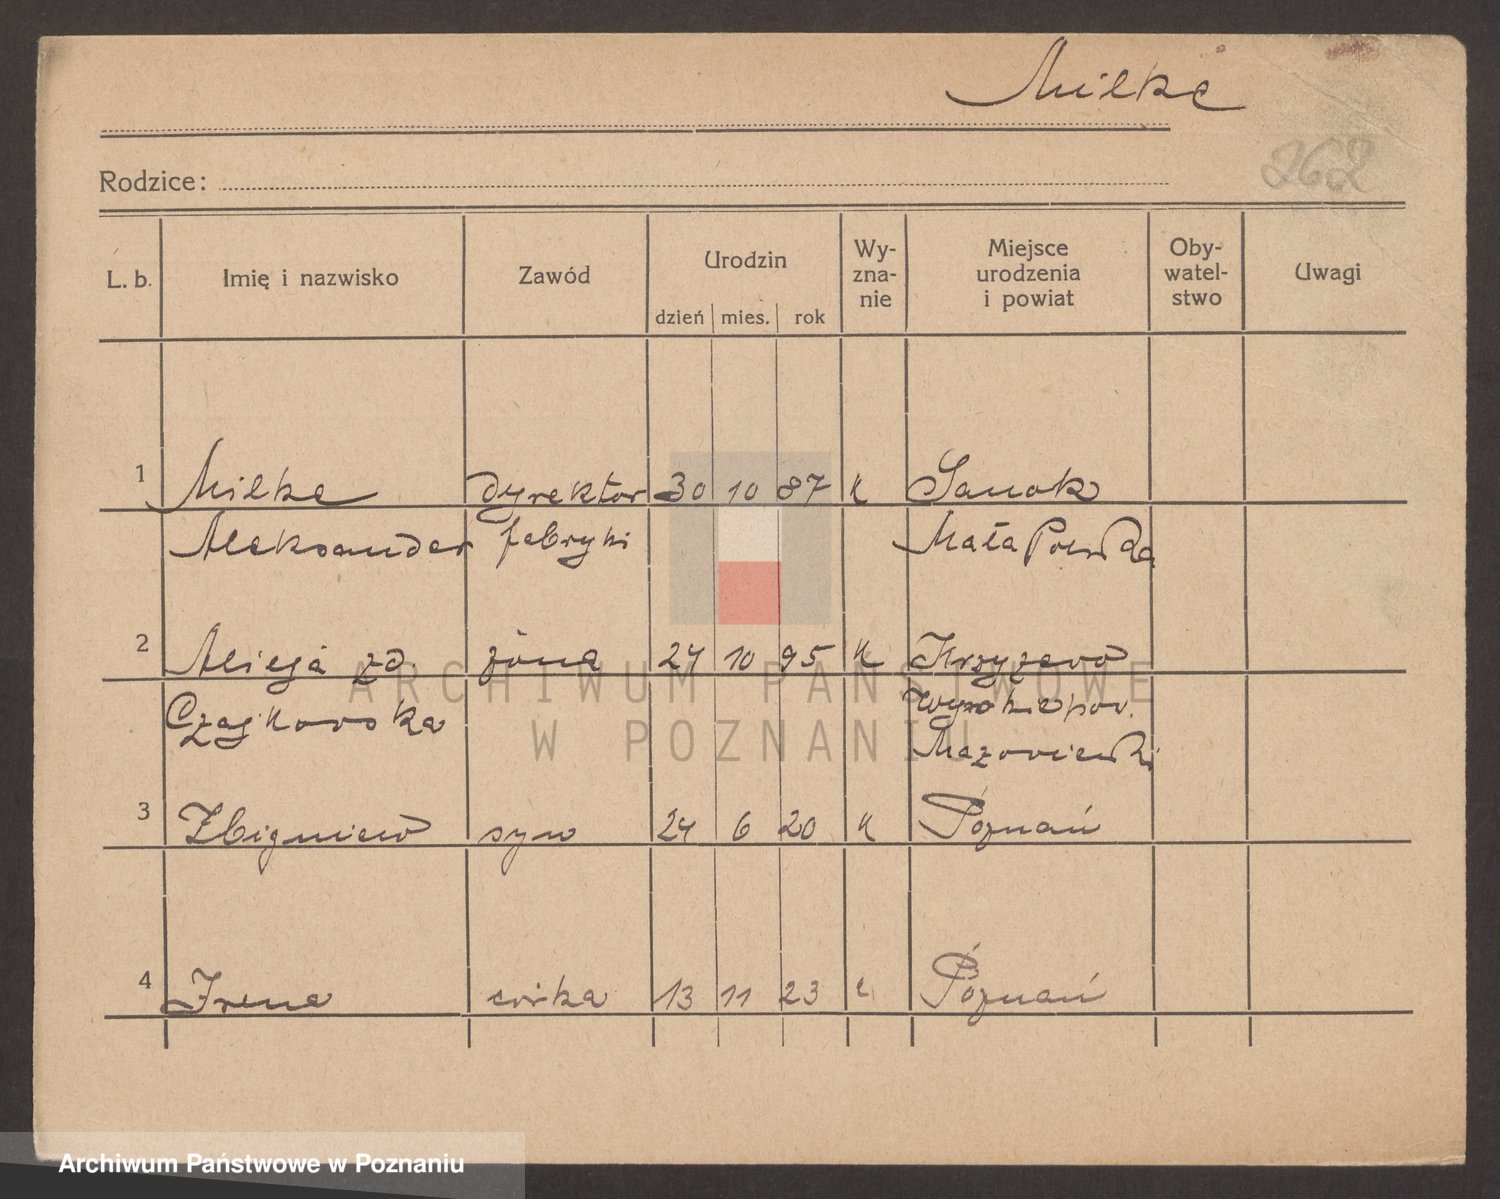 Milke
262
Rodzice:
L. b. Imię i nazwisko Zawód Urodzin dzień mies. rok Wy-zna-nie Miejsce urodzenia i powiat Oby-watel-stwo Uwagi
1 Milke dyrektor 30 10 87 k Sanok
Aleksander fabryki Małopolska
2 Alicja zd. żona 24 10 95 k Krzyżewo
Czajkowska Wysokie pow.
Mazowiecki
3 Zbigniew syn 24 6 20 k Poznań
4 Irena córka 13 11 23 k Poznań
ARCHIWUM PAŃSTWOWE
W POZNANIU
Archiwum Państwowe w Poznaniu